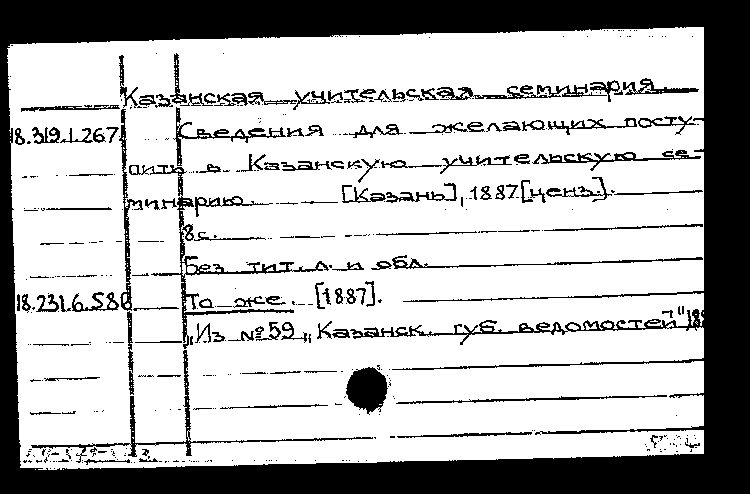 Казанская учительская семинария
18.319.1.267 Сведения для желающих посту-
пить в Казанскую учительскую се-
минарию. [Казань], 1887 [ценз.].
8 с.
Без тит. л. и обл.
18.231.6.586 То же. [1887].
„Из № 59 „Казанск. губ. ведомостей"